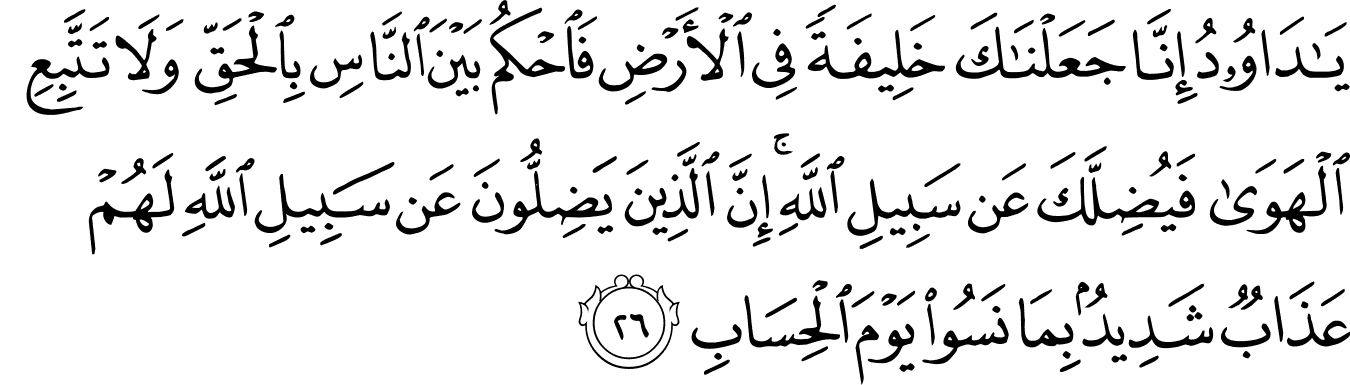 يَـٰدَاوُۥدُ إِنَّا جَعَلْنَـٰكَ خَلِيفَةً فِى ٱلْأَرْضِ فَٱحْكُم بَيْنَ ٱلنَّاسِ بِٱلْحَقِّ وَلَا تَتَّبِعِ
ٱلْهَوَىٰ فَيُضِلَّكَ عَن سَبِيلِ ٱللَّهِ ۚ إِنَّ ٱلَّذِينَ يَضِلُّونَ عَن سَبِيلِ ٱللَّهِ لَهُمْ
عَذَابٌ شَدِيدٌۢ بِمَا نَسُوا۟ يَوْمَ ٱلْحِسَابِ ٢٦